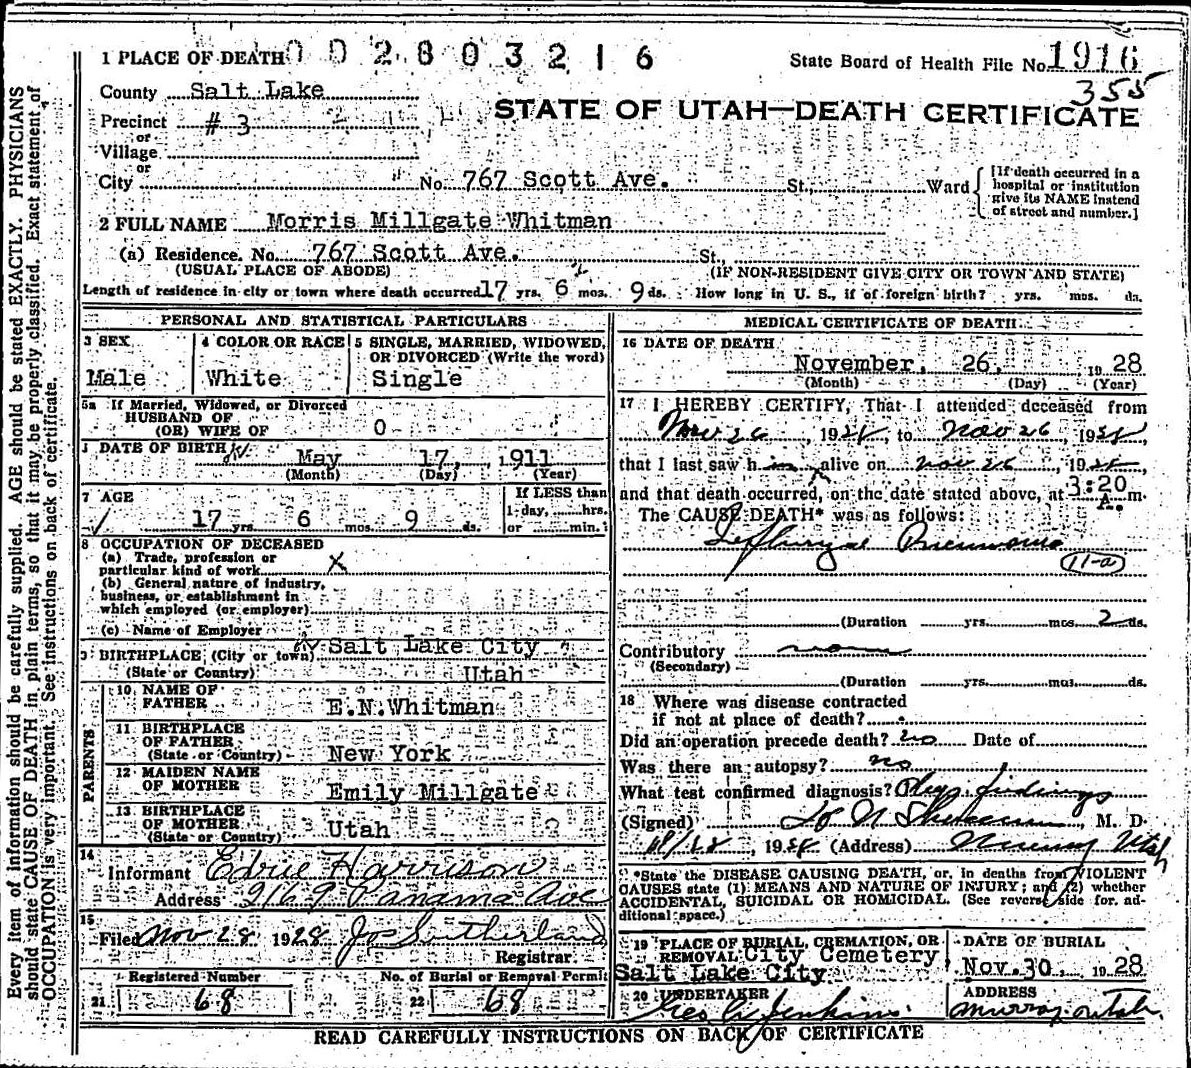 1 PLACE OF DEATH 0 0 2 8 0 3 2 1 6
State Board of Health File No. 1916
355
County Salt Lake
STATE OF UTAH—DEATH CERTIFICATE
Precinct # 3
or
Village
or
City No. 767 Scott Ave. St., Ward
[If death occurred in a hospital or institution give its NAME instead of street and number.]
2 FULL NAME Morris Millgate Whitman
(a) Residence. No. 767 Scott Ave. St.,
(USUAL PLACE OF ABODE) (IF NON-RESIDENT GIVE CITY OR TOWN AND STATE)
Length of residence in city or town where death occurred 17 yrs. 6 mos. 9 ds. How long in U. S., if of foreign birth? yrs. mos. ds.
PERSONAL AND STATISTICAL PARTICULARS
3 SEX
Male
4 COLOR OR RACE
White
5 SINGLE, MARRIED, WIDOWED,
OR DIVORCED (Write the word)
Single
5a If Married, Widowed, or Divorced
HUSBAND OF
(OR) WIFE OF 0
DATE OF BIRTH May 17, 1911
(Month) (Day) (Year)
7 AGE
17 yrs. 6 mos. 9 ds.
If LESS than
1 day, hrs.
or min.
8 OCCUPATION OF DECEASED
(a) Trade, profession or
particular kind of work X
(b) General nature of industry,
business, or establishment in
which employed (or employer)
(c) Name of Employer
9 BIRTHPLACE (City or town) Salt Lake City
(State or Country) Utah
PARENTS
10 NAME OF
FATHER E.N.Whitman
11 BIRTHPLACE
OF FATHER
(State or Country) New York
12 MAIDEN NAME
OF MOTHER Emily Millgate
13 BIRTHPLACE
OF MOTHER
(State or Country) Utah
14
Informant Edrie Harrison
Address 2169 Panama Ave
15
Filed Nov 28 1928 Jos Sutherland
Registrar.
Registered Number
21 68
No. of Burial or Removal Permit
22 68
MEDICAL CERTIFICATE OF DEATH
16 DATE OF DEATH
November 26, 1928
(Month) (Day) (Year)
17 I HEREBY CERTIFY, That I attended deceased from
Nov 26, 1928, to Nov 26, 1928,
that I last saw him alive on Nov 26, 1928,
and that death occurred, on the date stated above, at 3:20 A. m.
The CAUSE DEATH* was as follows:
Pneumonia
11-a
(Duration yrs. mos. 2 ds.
Contributory none
(Secondary)
(Duration yrs. mos. ds.
18 Where was disease contracted
if not at place of death?
Did an operation precede death? no Date of
Was there an autopsy? no
What test confirmed diagnosis? Phys findings
(Signed) M. D.
1928 (Address) Murray Utah
*State the DISEASE CAUSING DEATH, or, in deaths from VIOLENT
CAUSES state (1) MEANS AND NATURE OF INJURY; and (2) whether
ACCIDENTAL, SUICIDAL OR HOMICIDAL. (See reverse side for ad-
ditional space.)
19 PLACE OF BURIAL, CREMATION, OR
REMOVAL City Cemetery
Salt Lake City
DATE OF BURIAL
Nov. 30, 1928
20 UNDERTAKER
Jenkins
ADDRESS
Murray Utah.
READ CAREFULLY INSTRUCTIONS ON BACK OF CERTIFICATE
Every item of information should be carefully supplied. AGE should be stated EXACTLY. PHYSICIANS
should state CAUSE OF DEATH in plain terms, so that it may be properly classified. Exact statement of
OCCUPATION is very important. See instructions on back of certificate.